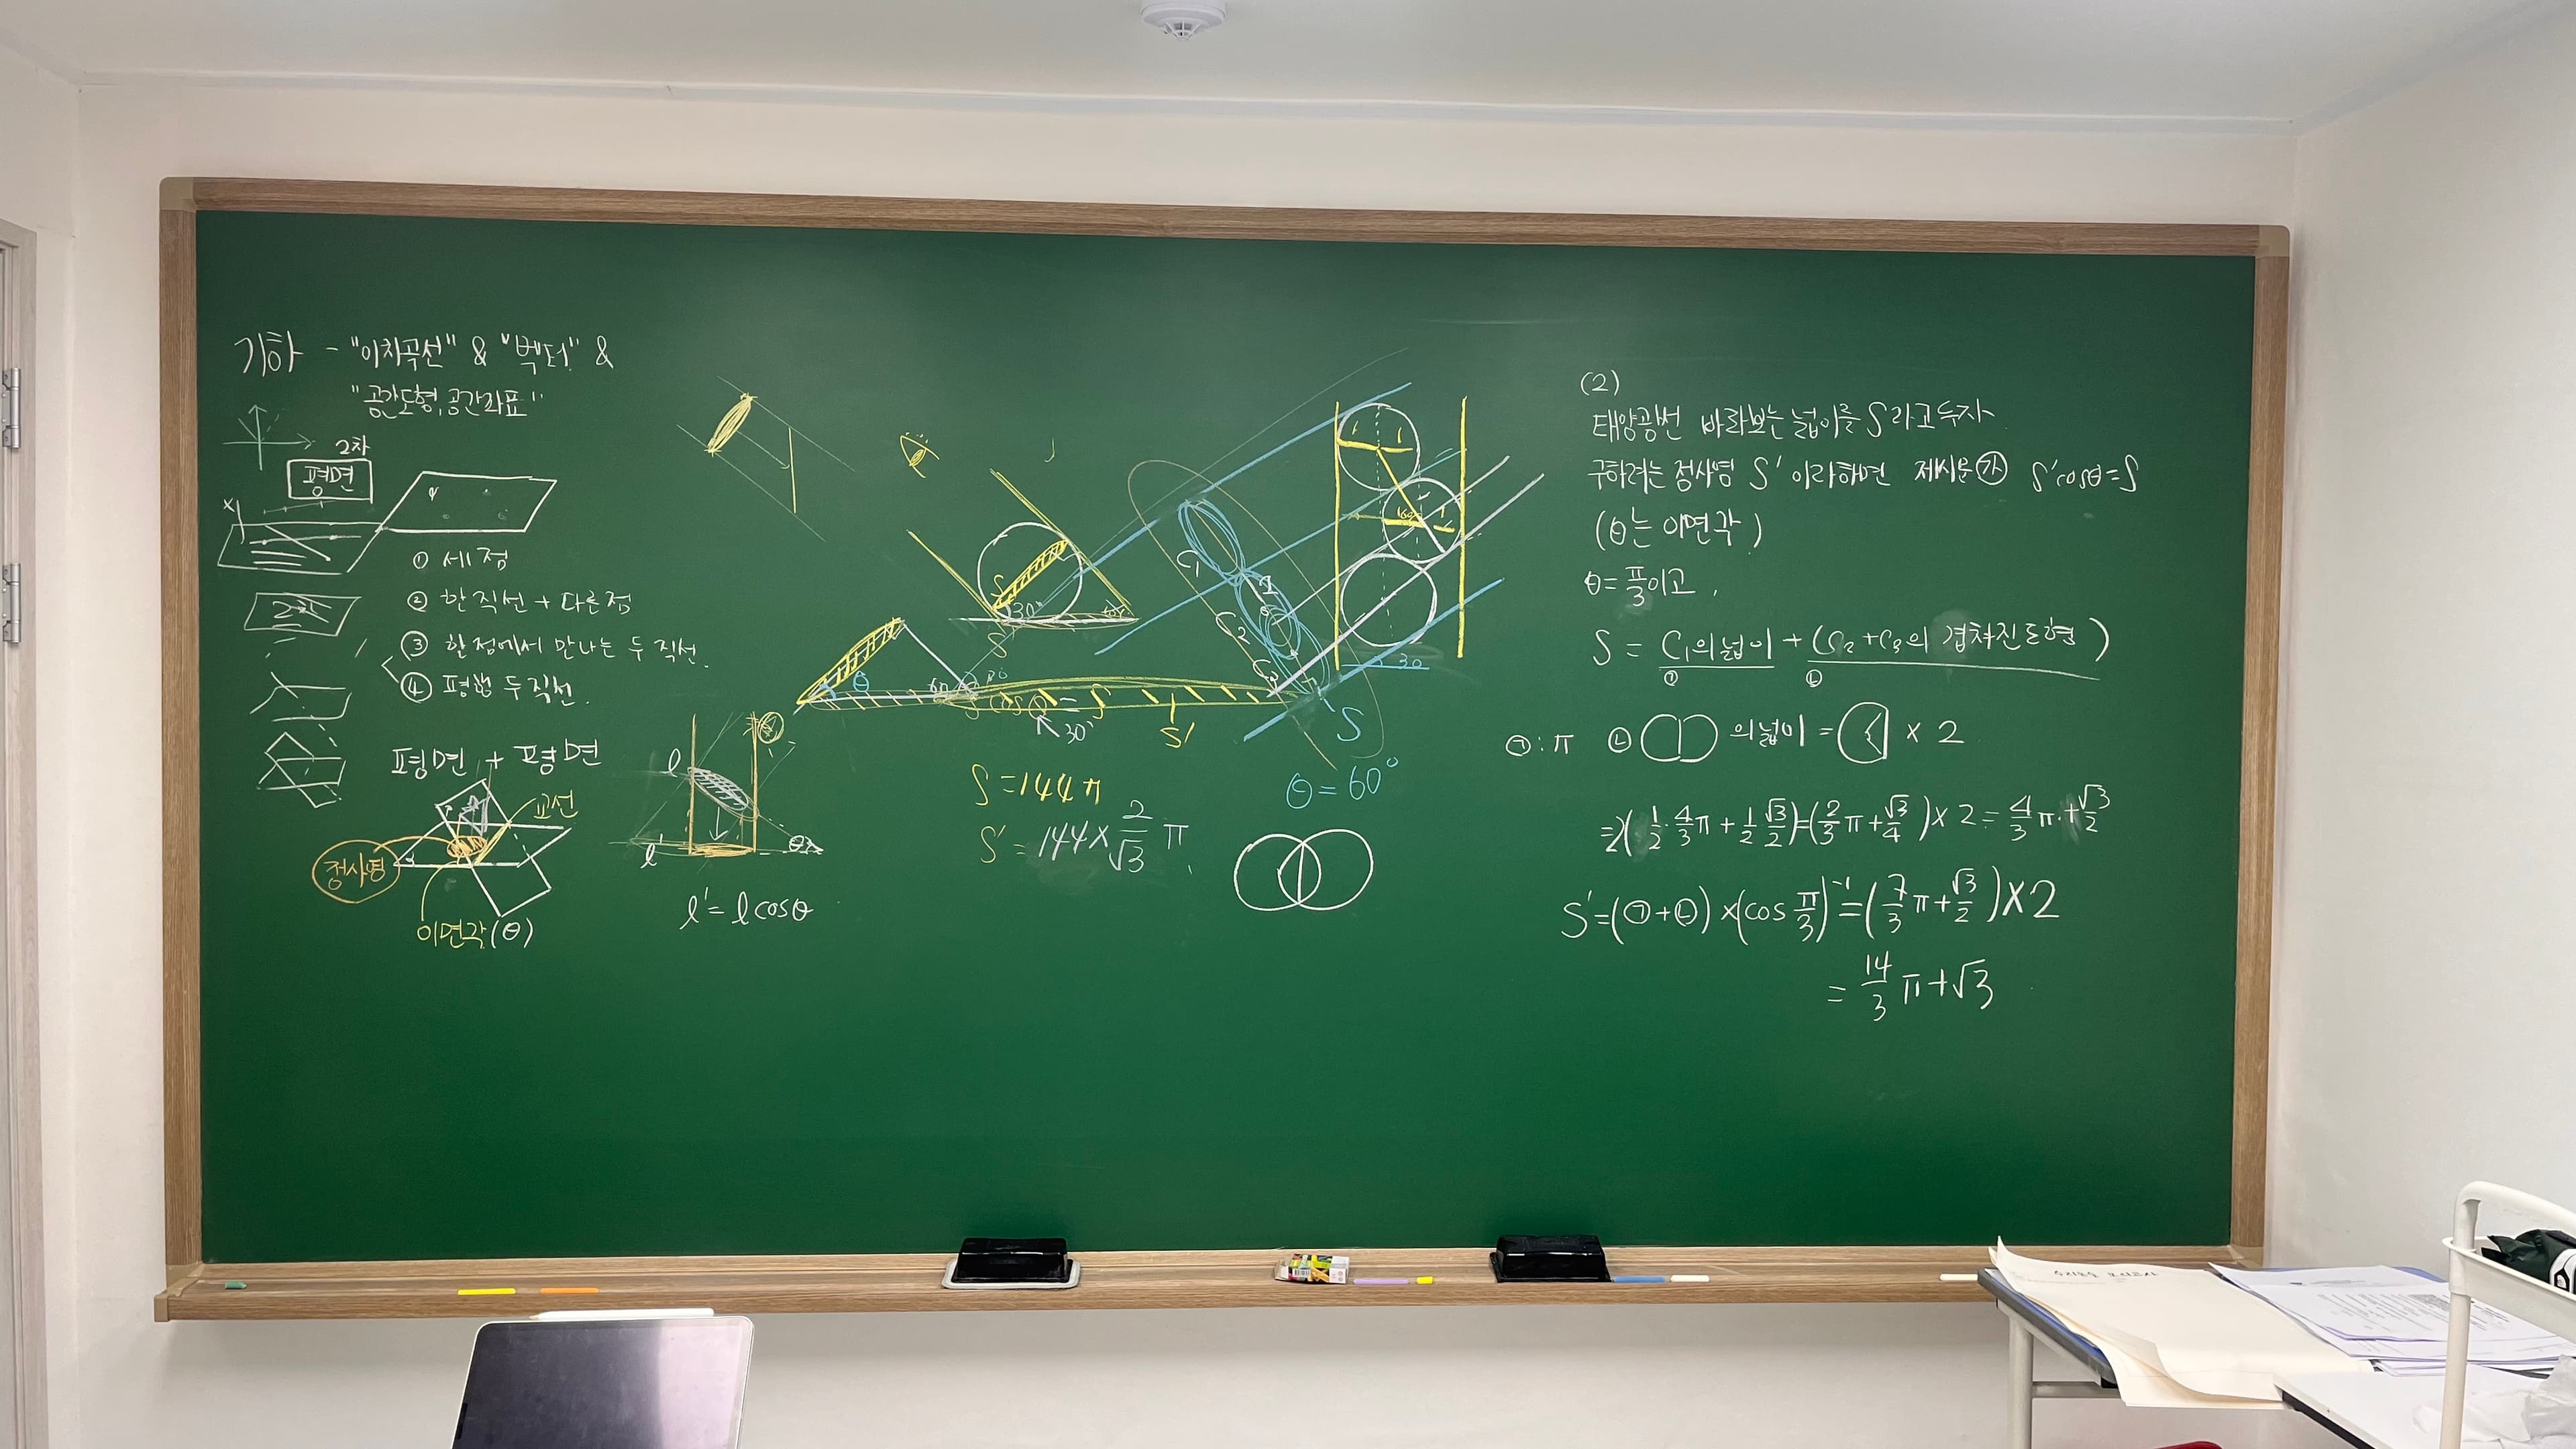 기하 - "이차곡선" & "벡터" &
"공간도형, 공간좌표"
2차
평면
x
① 세 점
② 한 직선 + 다른 점
③ 한 점에서 만나는 두 직선.
④ 평행 두 직선.
평면 + 평면
교선
정사영
이면각(θ)
l
l'
θ
l' = l cosθ
S
30°
S
θ
60
S cosθ = S
30°
S'
C₁
C₂
C₃
S
1 1
30
S = 144π
S' = 144 × 2/√3 π
θ = 60°
(2)
태양광선 바라보는 넓이를 S라고 두자
구하려는 정사영 S' 이라하면 제시문 ㉮ S'cosθ = S
(θ는 이면각)
θ = π/3 이고,
S = C₁의 넓이 + (C₂+C₃의 겹쳐진 도형)
㉠ ㉡
㉠ : π ㉡ 의 넓이 = × 2
=2(1/2·4/3π + 1/2 √3/2)=(2/3π + √3/4)×2 = 4/3π + √3/2
S' = (㉠+㉡) × (cos π/3)⁻¹ = (7/3π + √3/2)×2
= 14/3 π + √3